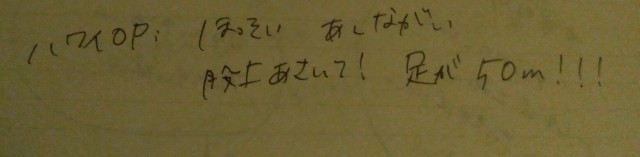 ハワイOP: ほっそい あしながい
股上あさいて! 足が50m!!!